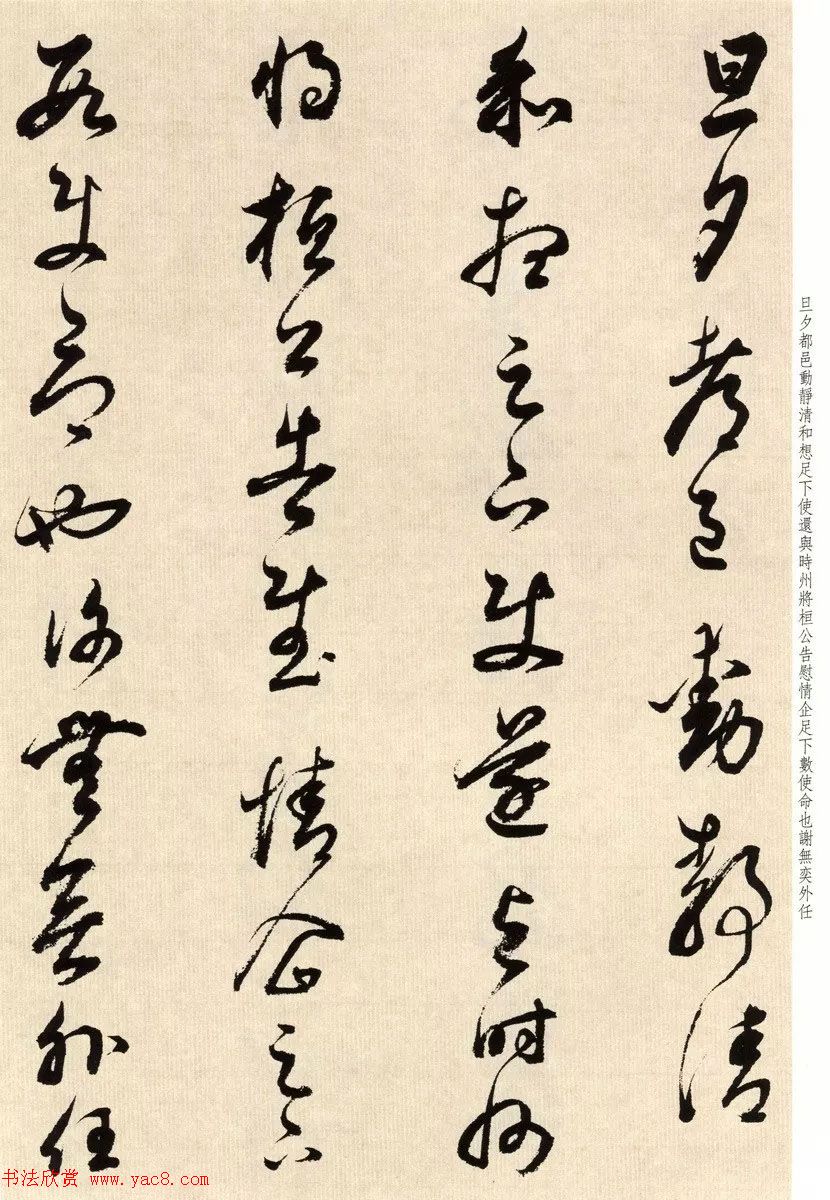 旦夕都邑動靜清
和想足下使還與時州
將桓公告慰情企足下
數使命也謝無奕外任
旦夕都邑動靜清和想足下使還與時州將桓公告慰情企足下數使命也謝無奕外任
书法欣赏 www.yac8.com